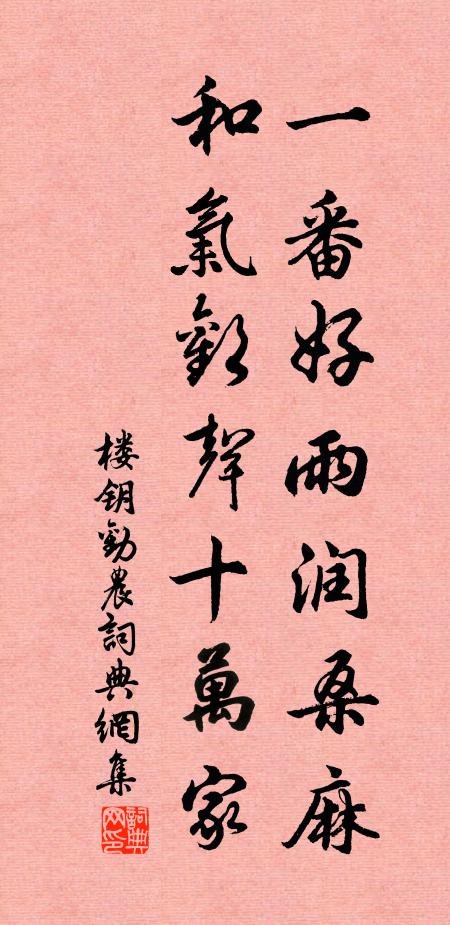 一番好雨润桑麻
和氣歡聲十萬家
楼钥勸農詞典網集
詞典网印